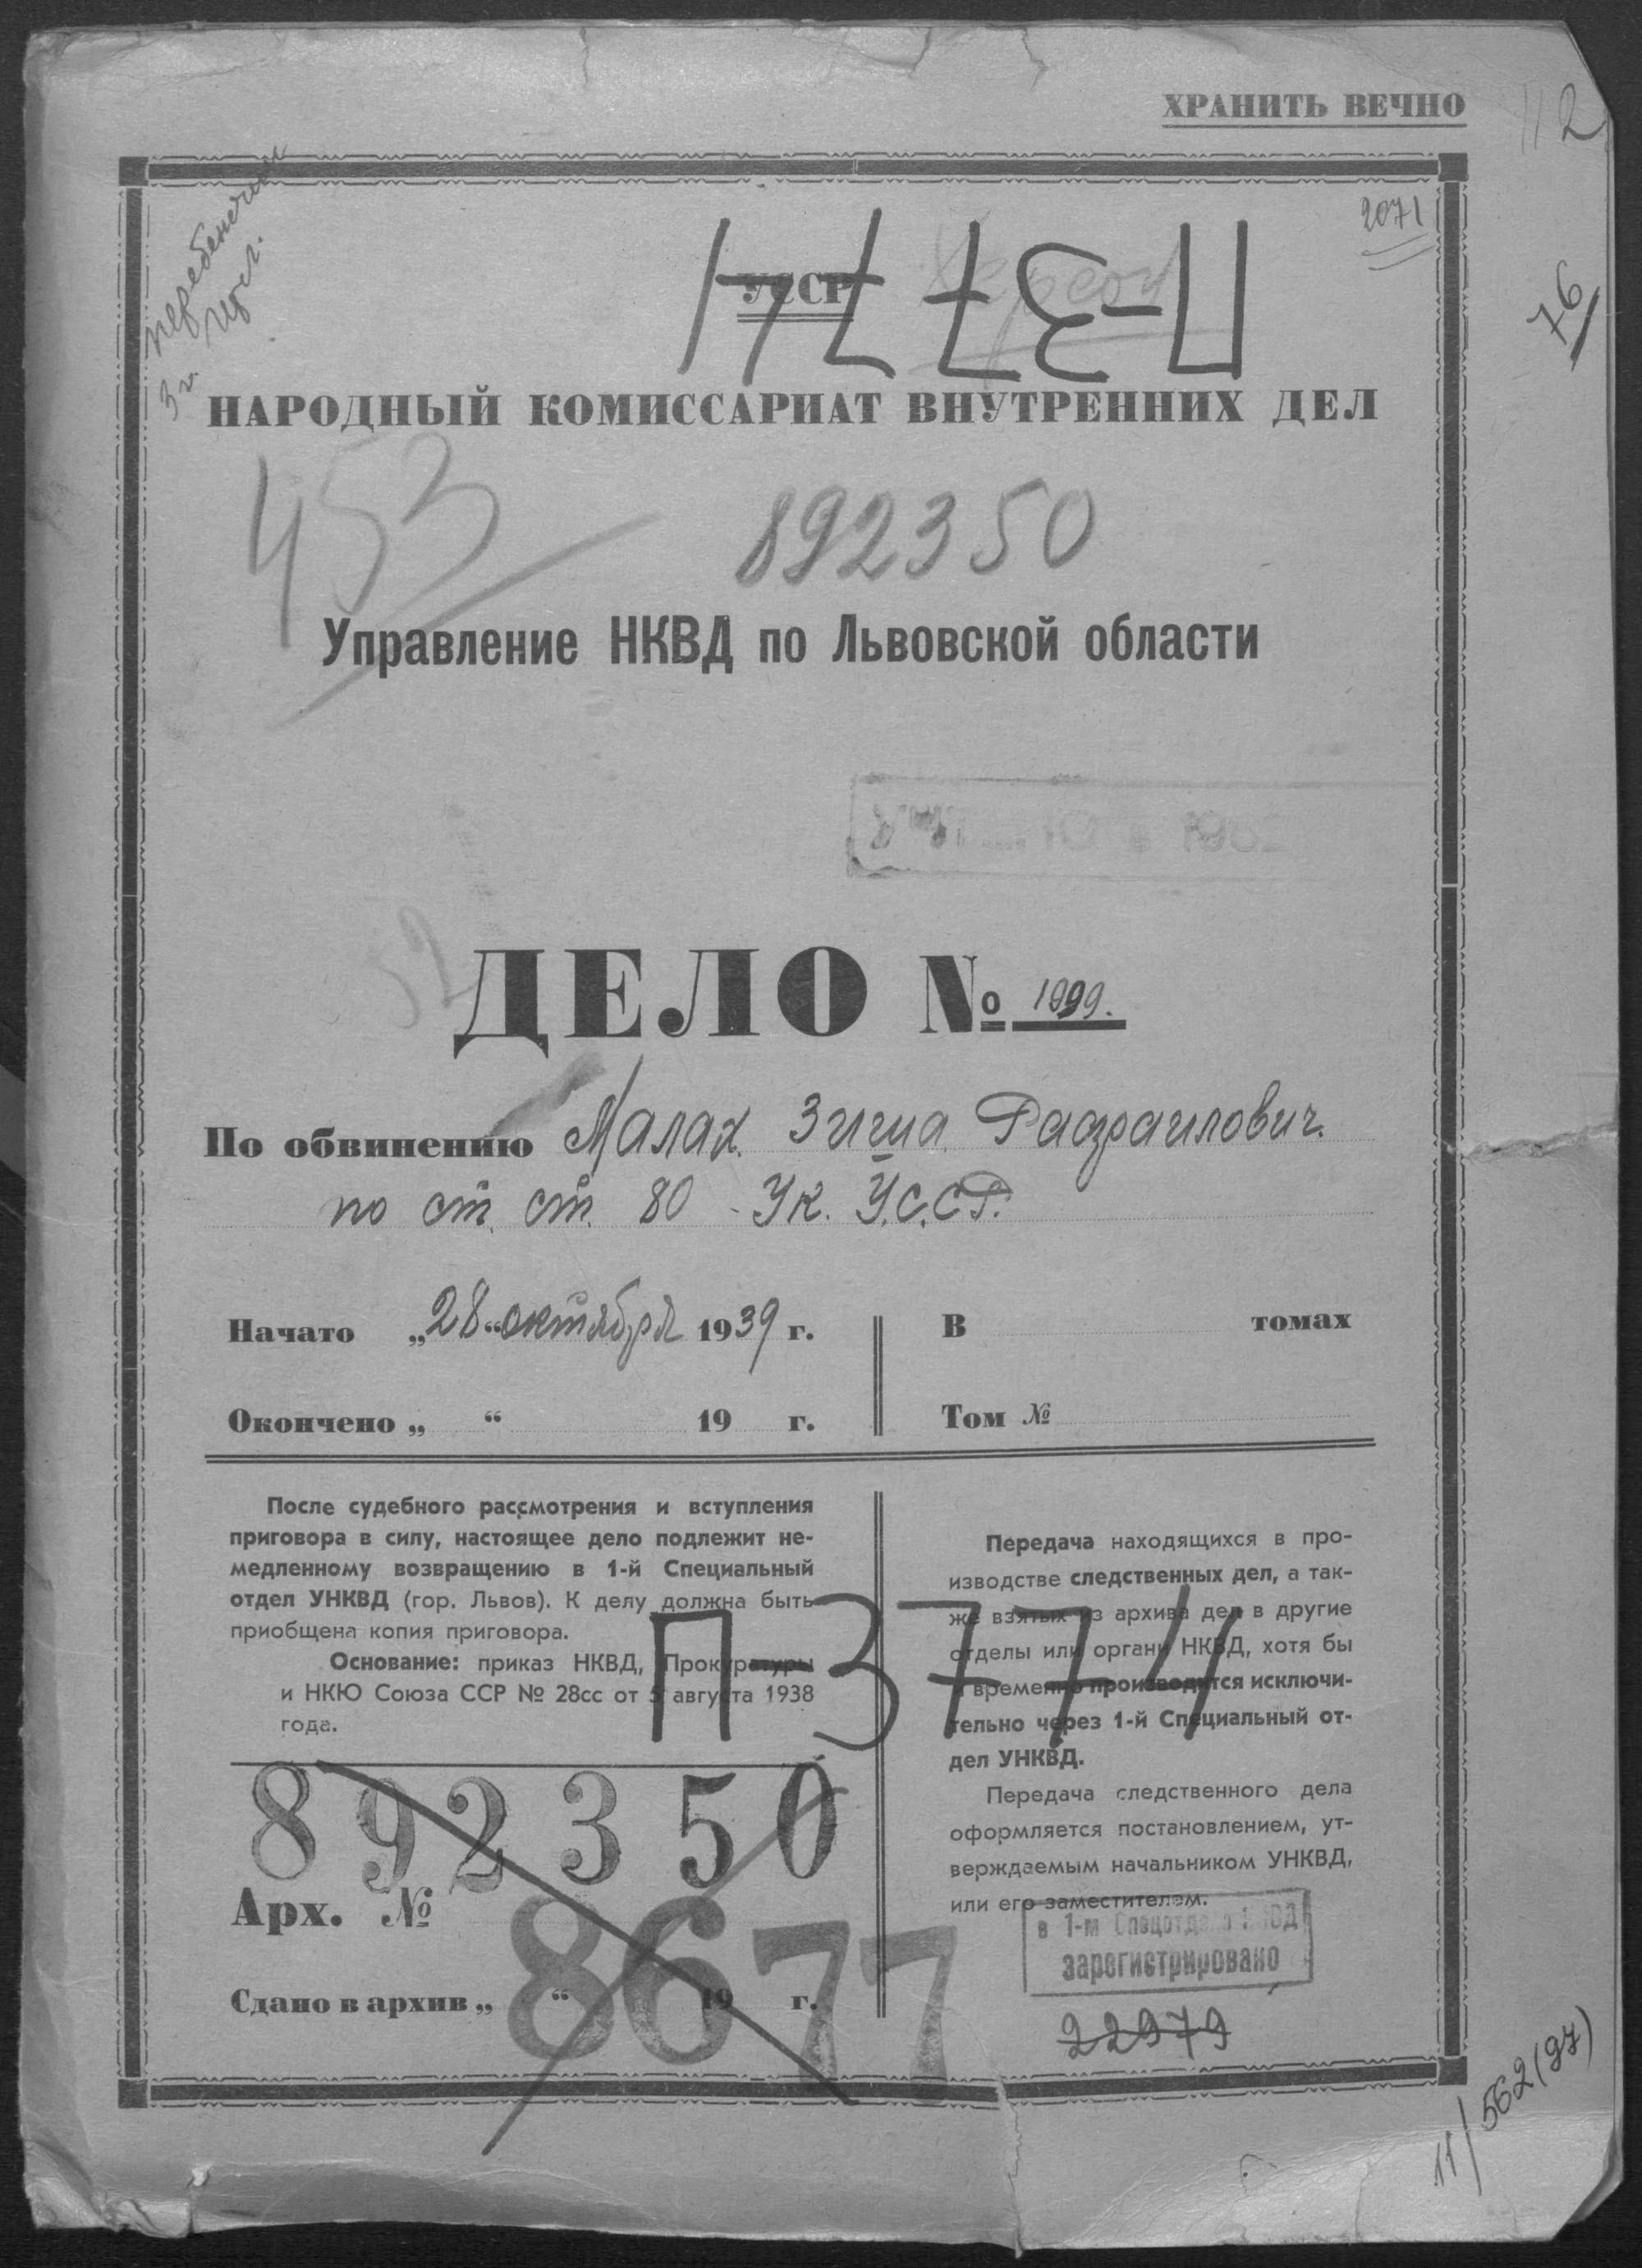 ХРАНИТЬ ВЕЧНО
2
2071
76
УССР
П-37741
НАРОДНЫЙ КОМИССАРИАТ ВНУТРЕННИХ ДЕЛ
453
892350
Управление НКВД по Львовской области
ДЕЛО № 1999.
По обвинению Малах Зигма Рафаилович.
по ст. ст. 80 - Ук. У.С.С.Р.
Начато „28“ октября 1939 г.
Окончено „ “ 19 г.
В томах
Том №
После судебного рассмотрения и вступления
приговора в силу, настоящее дело подлежит не-
медленному возвращению в 1-й Специальный
отдел УНКВД (гор. Львов). К делу должна быть
приобщена копия приговора.
Основание: приказ НКВД, Прокуратуры
и НКЮ Союза ССР № 28сс от 5 августа 1938
года.
Передача находящихся в про-
изводстве следственных дел, а так-
же взятых из архива дел в другие
отделы или органы НКВД, хотя бы
и временно производится исключи-
тельно через 1-й Специальный от-
дел УНКВД.
Передача следственного дела
оформляется постановлением, ут-
верждаемым начальником УНКВД,
или его заместителем.
П 37741
892350
Арх. №
8677
Сдано в архив „ “ 19 г.
в 1-м Спецотделе
зарегистрировано
22979
11/562(97)